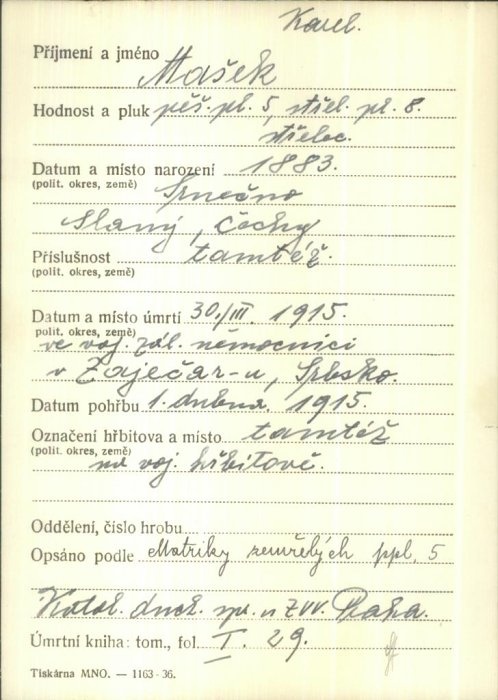 Karel.
Příjmení a jméno Mašek
Hodnost a pluk pěš. pl. 5, střel. pl. 8.
střelec.
Datum a místo narození 1883.
(polit. okres, země) Srnečno
Slaný, Čechy
Příslušnost tamtéž.
(polit. okres, země)
Datum a místo úmrtí 30./III. 1915.
(polit. okres, země)
ve voj. zál. nemocnici
v Zaječar-u, Srbsko.
Datum pohřbu 1. dubna 1915.
Označení hřbitova a místo tamtéž
(polit. okres, země)
na voj. hřbitově.
Oddělení, číslo hrobu
Opsáno podle Matriky zemřelých ppl. 5
Katol. duch. spr. u ZVV. Praha.
Úmrtní kniha: tom., fol. I. 29.
Tiskárna MNO. — 1163-36.